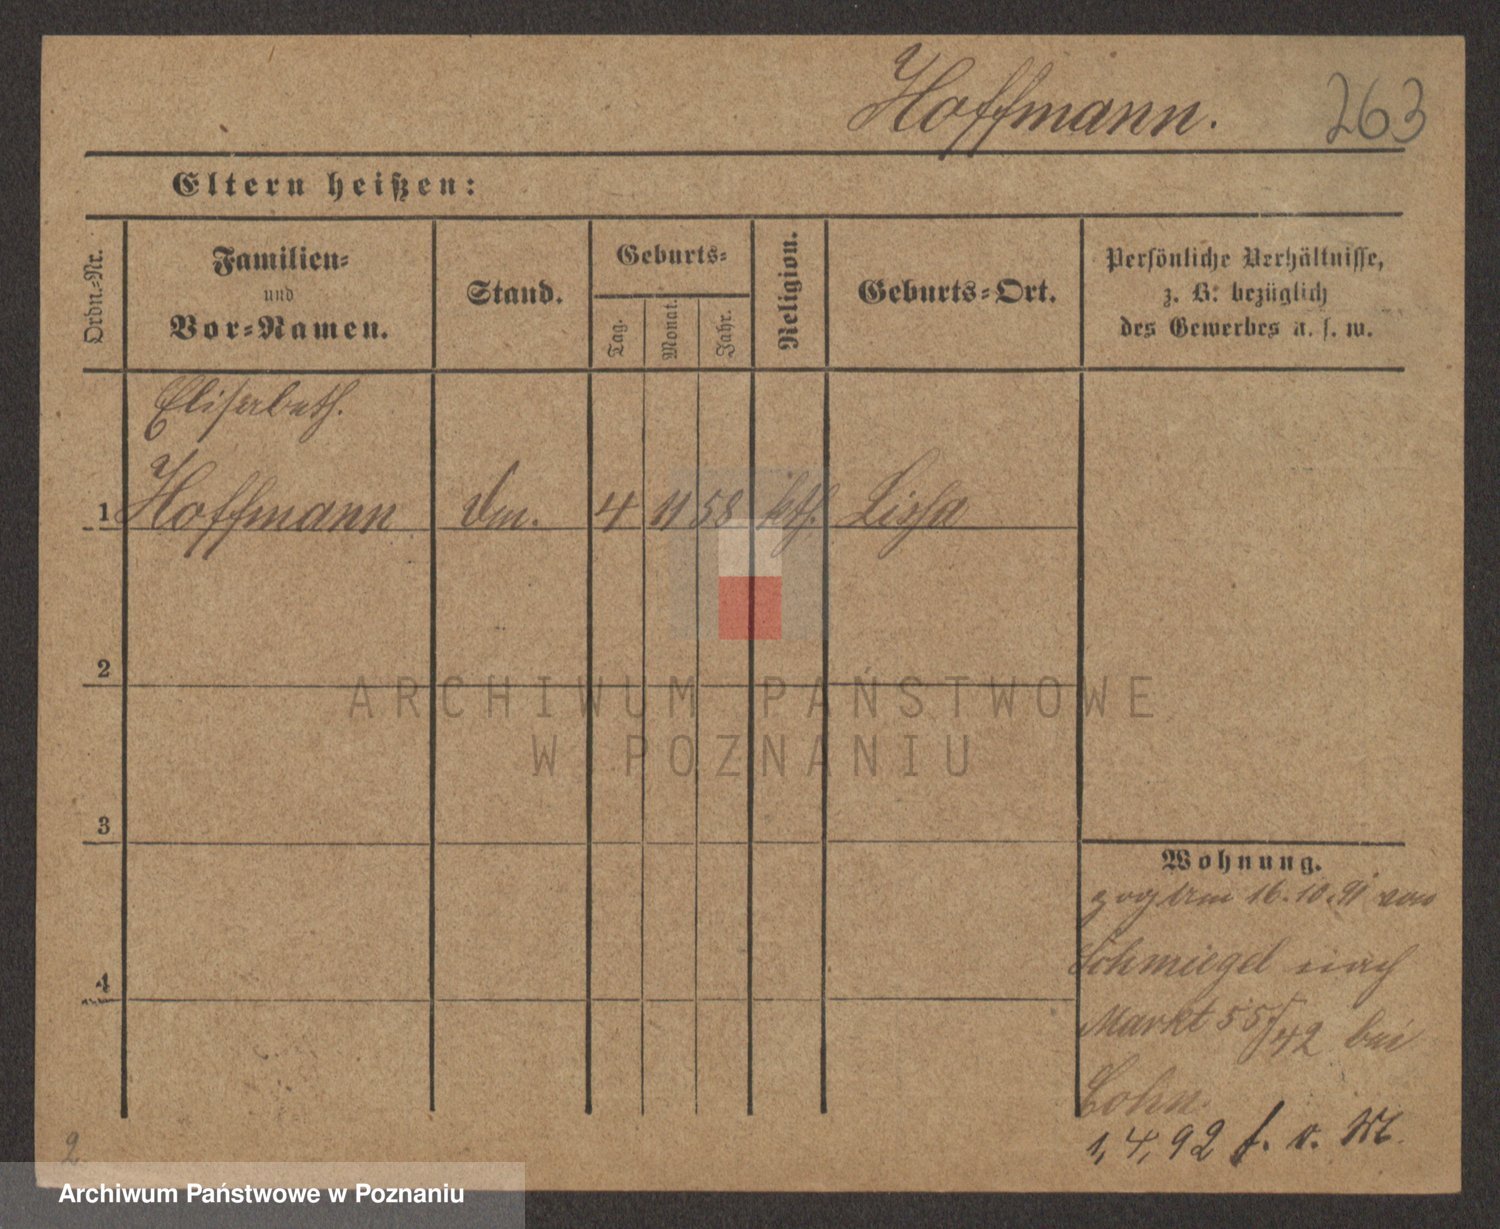 Hoffmann.
263
Eltern heißen:
Ordn.-Nr.
Familien-
und
Vor-Namen.
Stand.
Geburts-
Tag.
Monat.
Jahr.
Religion.
Geburts-Ort.
Persönliche Verhältnisse,
z. B. bezüglich
des Gewerbes u. s. w.
Elisabeth.
1 Hoffmann 4 11 58 kth. Lissa
2
ARCHIWUM PAŃSTWOWE
W POZNANIU
3
4
Wohnung.
16.10.91 von
Schmiegel nach
Markt 55/42 bei
Cohn.
1,4,92 f. v. M.
2
Archiwum Państwowe w Poznaniu